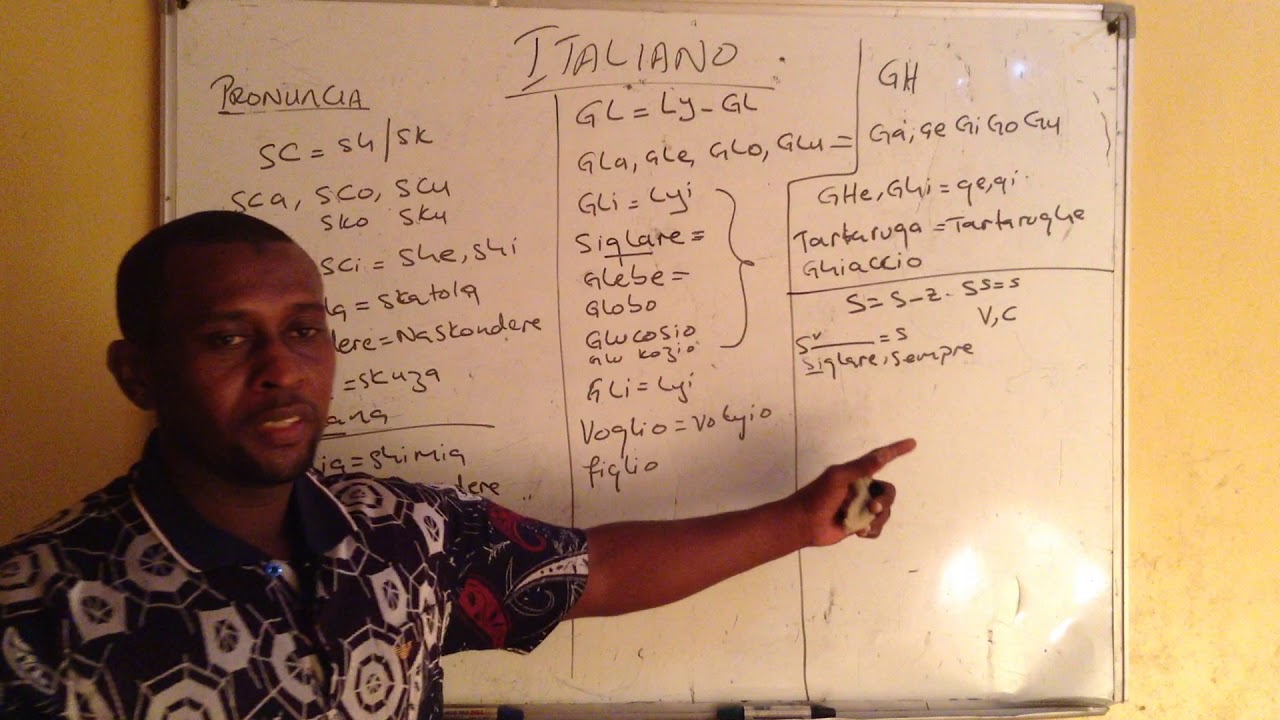 ITALIANO
PRONUNCIA
SC = sh/sk
sca, sco, scu
sko sku
sci = she, shi
= skatola
dere = Naskondere
= skuza
ana
ia = shimia
dere
GL = Ly - GL
GLa, GLe, GLO, GLu =
GLi = Lyi
Siglare =
GLebe =
GLOBO
GLucosio
GLu kozio
GLi = Lyi
Voglio = Volyio
figlio
GH
Ga, ge Gi Go Gu
GHe, GHi = ge, gi.
Tartaruga = Tartarughe
Ghiaccio
S = S - Z. SS = s
V, C
S v = s
Siglare, sempre